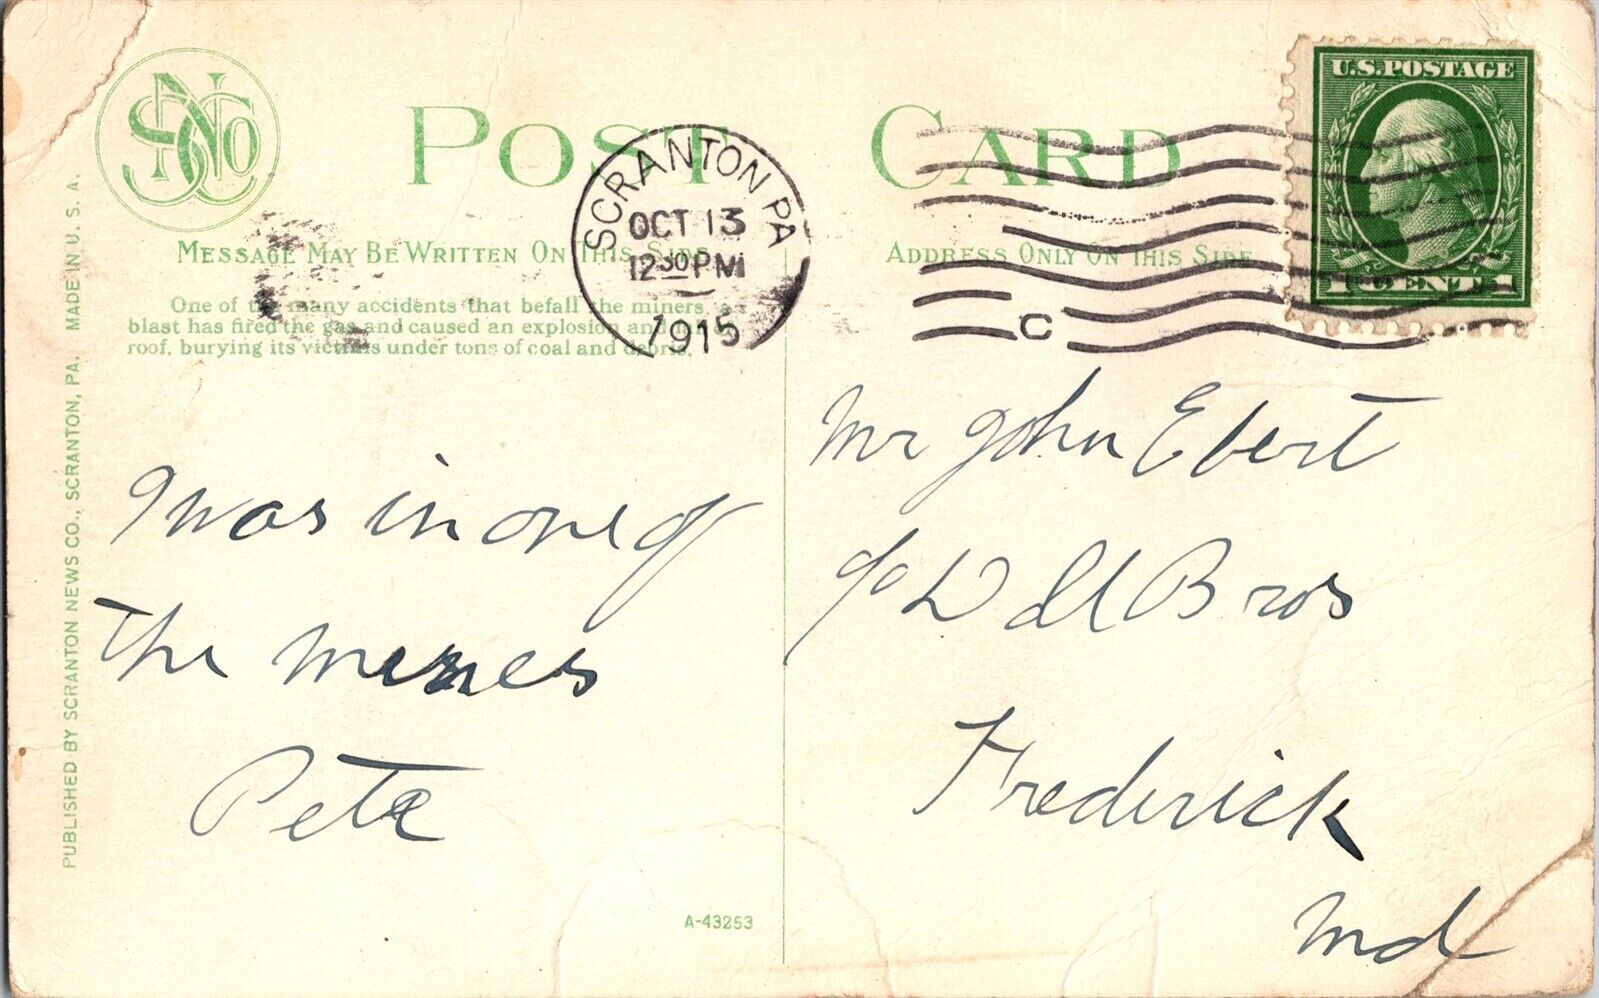 POST CARD
MESSAGE MAY BE WRITTEN ON THIS SIDE
ADDRESS ONLY ON THIS SIDE
SCRANTON PA
OCT 13
12 30 PM
1915
C
U.S. POSTAGE
1 CENT 1
One of the many accidents that befall the miners, a
blast has fired the gas and caused an explosion and
roof, burying its victims under tons of coal and debris.
PUBLISHED BY SCRANTON NEWS CO., SCRANTON, PA. MADE IN U. S. A.
I was in one of
the mines
Pete
A-43253
Mr John Ebert
c/o Bros
Frederick
Md